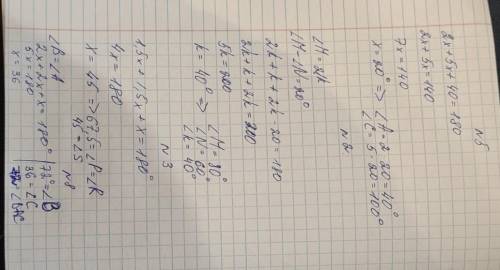 N5
2x + 5x + 40 = 180
2x + 5x = 140
7x = 140
x = 20° => ∠A = 2 · 20 = 40°
∠C = 5 · 20 = 100°
N2
∠M = 2k
∠M - ∠N = 20°
2k + k + 2k - 20 = 180
2k + k + 2k = 200
5k = 200
k = 40° => ∠M = 80°
∠N = 60°
∠k = 40°
N3
1,5x + 1,5x + x = 180°
4x = 180
x = 45 => 67,5 = ∠P = ∠R
45 = ∠S
N8
∠B = ∠A
2x + 2x + x = 180°
5x = 180
x = 36
72° = ∠B
36 = ∠C